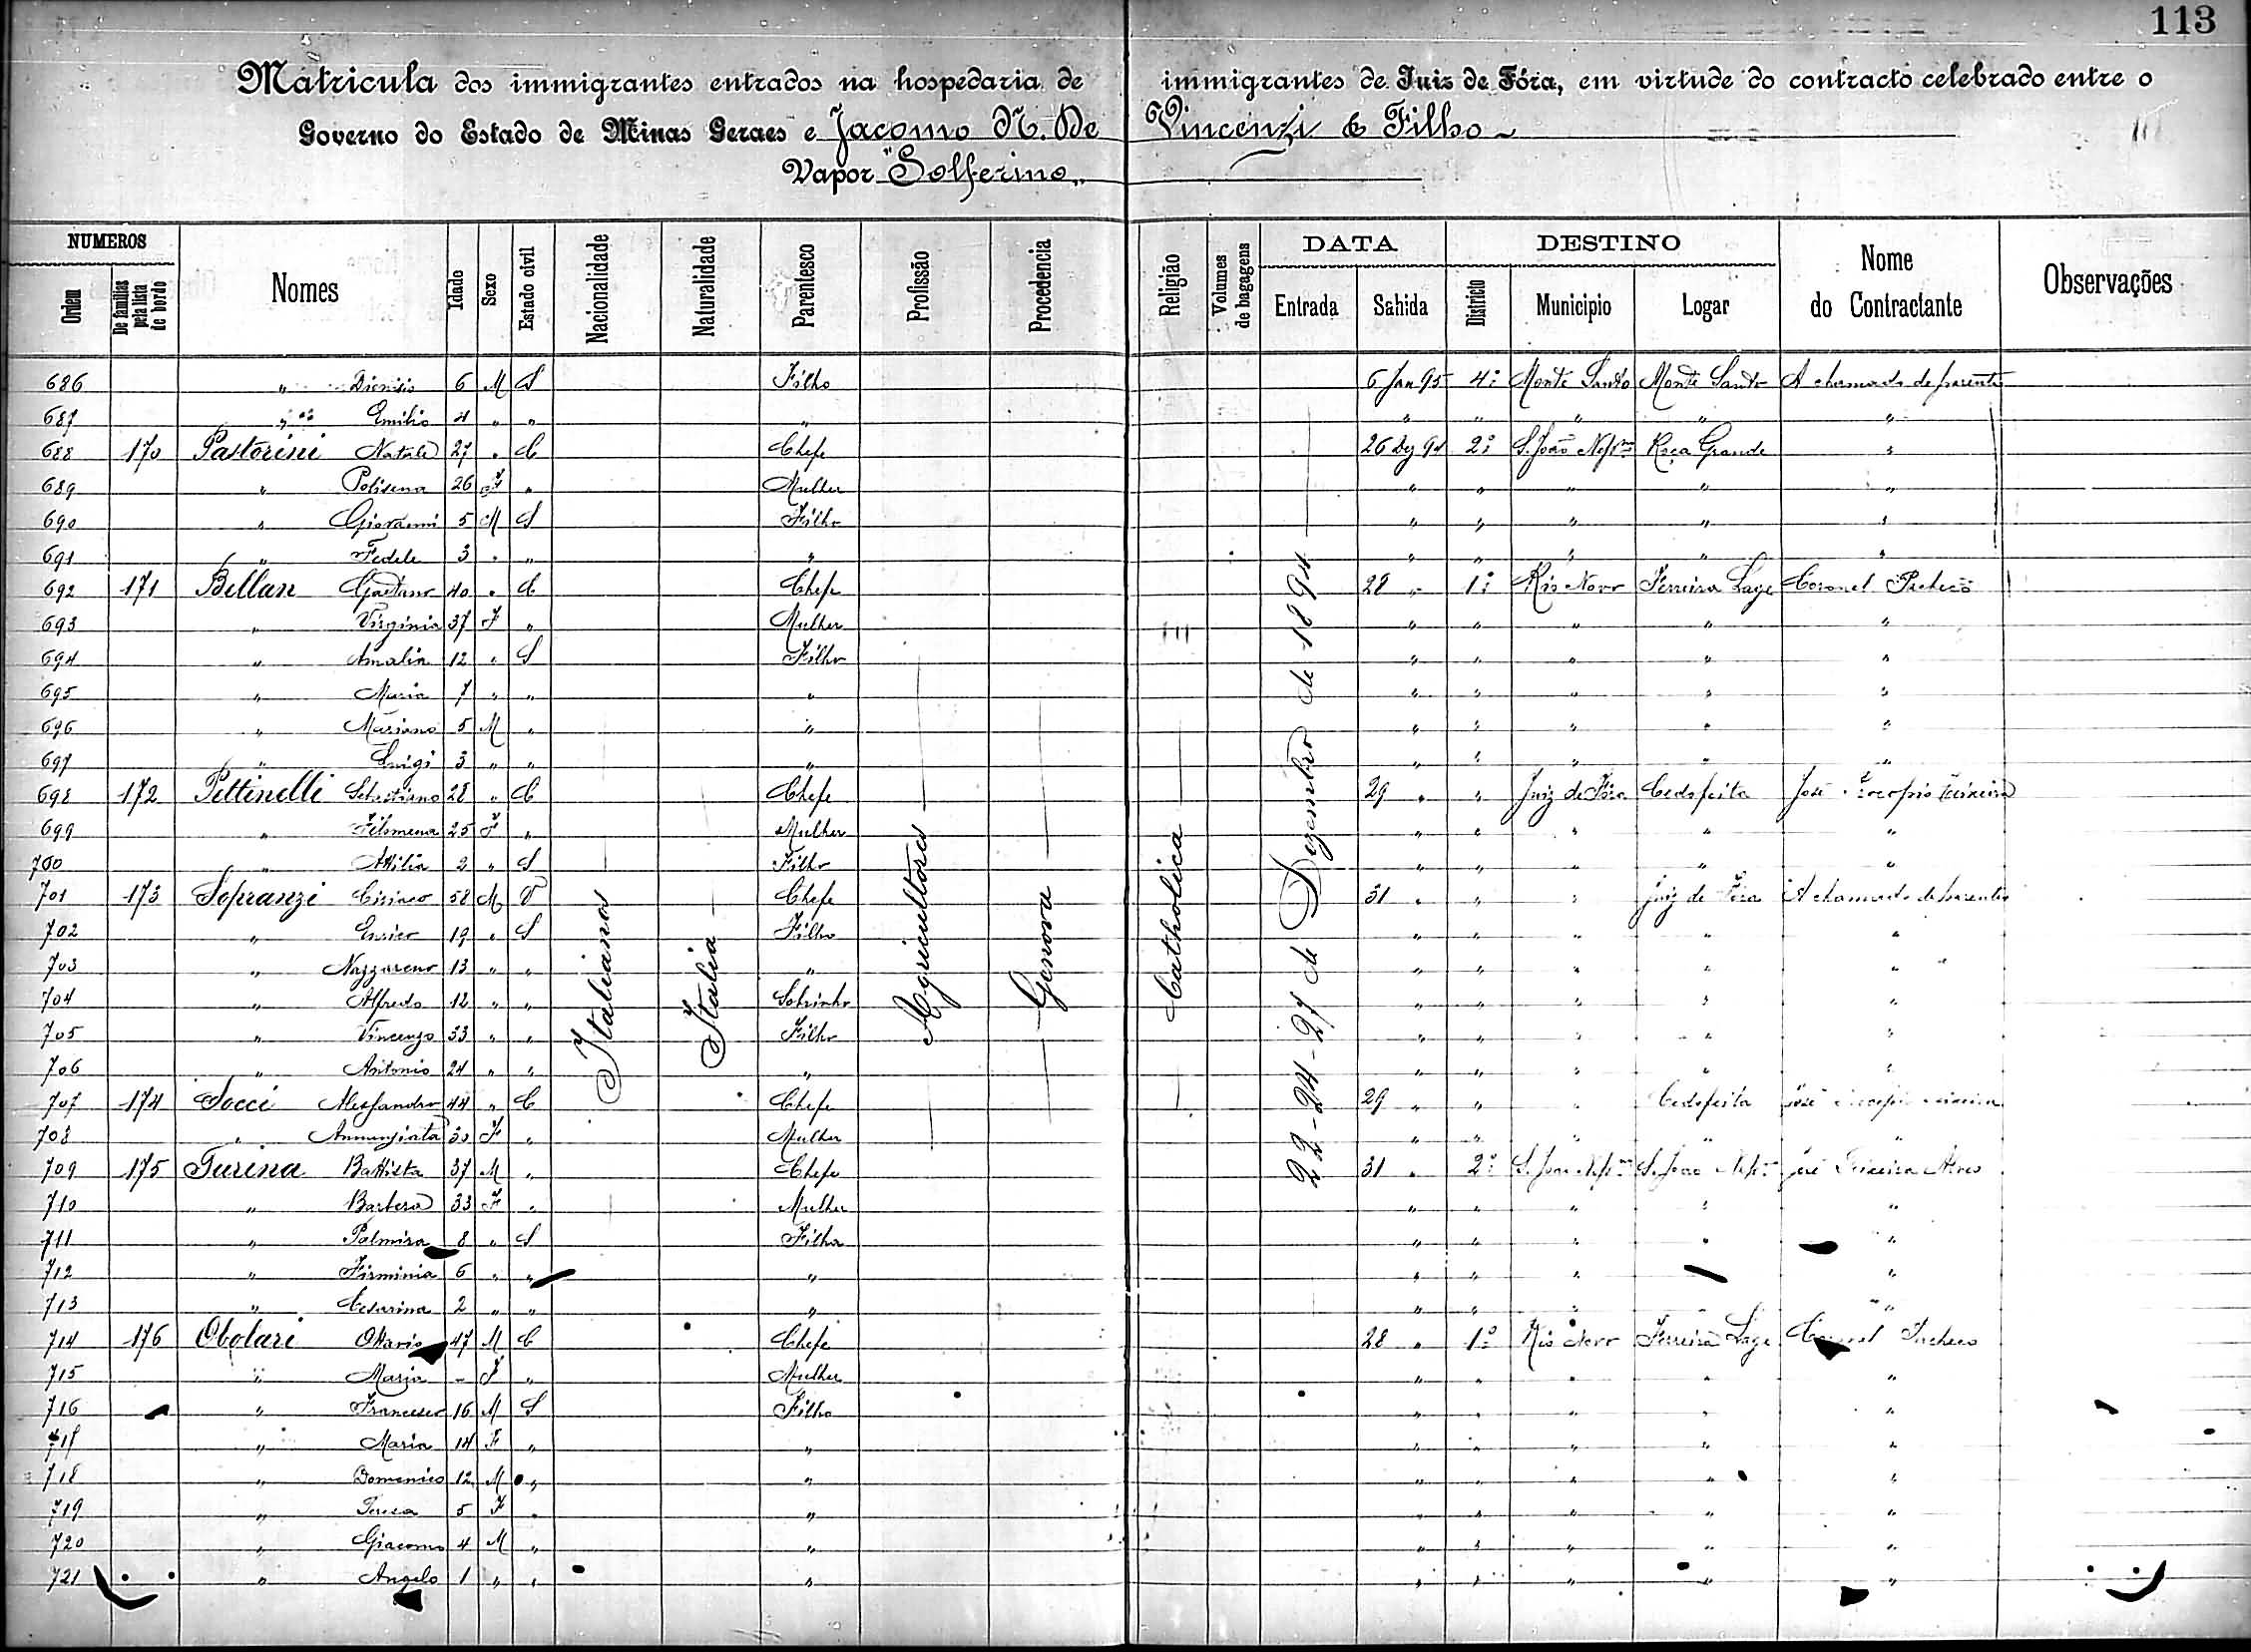 113
Matricula dos immigrantes entrados na hospedaria de immigrantes de Juiz de Fóra, em virtude do contracto celebrado entre o
Governo do Estado de Minas Geraes e Jacomo N. De Vincenzi & Filho
Vapor "Solferino"
NUMEROS DATA DESTINO
Ordem De familias pela lista de bordo Nomes Idade Sexo Estado civil Nacionalidade Naturalidade Parentesco Profissão Procedencia Religião Volumes de bagagens Entrada Sahida Districto Municipio Logar Nome do Contractante Observações
686 " Dionisio 6 M S Filho 6 Jan 95 4º Monte Santo Monte Santo A chamado de parentes
687 " " Emilio 4 " " " " " " " "
688 170 Pastorini Natale 27 " C Chefe 26 Dez 94 2º S. João Nepno Roça Grande "
689 " Polisena 26 F " Mulher " " " " "
690 " Giovanni 5 M S Filho " " " " "
691 " Fedele 3 " " " " " " " "
692 171 Bellan Gaetano 40 " C Chefe 28 " 1º Rio Novo Ferreira Lage Coronel Pacheco
693 " Virginia 37 F " Mulher " " " " "
694 " Amalia 12 " S Filho " " " " "
695 " Maria 7 " " " " " " " "
696 " Mariano 5 M " " " " " " "
697 " Luigi 3 " " " " " " " "
698 172 Pettinelli Sebastiano 28 " C Chefe 29 " " Juiz de Fóra Cedofeita José Procopio Teixeira
699 " Filomena 25 F " Mulher " " " " "
700 " Attilia 2 " S Filho " " " " "
701 173 Sopranzi Ciriaco 58 M V Chefe 31 " " " Juiz de Fóra A chamado de parentes
702 " Enrico 19 " S Filho " " " " "
703 " Nazzareno 13 " " " " " " " "
704 " Alfredo 12 " " Sobrinho " " " " "
705 " Vincenzo 33 " " Filho " " " " "
706 " Antonio 24 " " " " " " " "
707 174 Socci Alessandro 44 " C Chefe 29 " " " Cedofeita José Procopio Teixeira
708 " Annunziata 30 F " Mulher " " " " "
709 175 Turina Battista 37 M " Chefe 31 " 2º S. João Nepno S. João Nepno José Teixeira Alves
710 " Barbera 33 F " Mulher " " " " "
711 " Palmira 8 " S Filha " " " " "
712 " Firminia 6 " " " " " " " "
713 " Cesarina 2 " " " " " " " "
714 176 Obolari Ottavio 47 M C Chefe 28 " 1º Rio Novo Ferreira Lage Coronel Pacheco
715 " Maria - F " Mulher " " " " "
716 " Francesco 16 M S Filho " " " " "
717 " Maria 14 F " " " " " " "
718 " Domenico 12 M " " " " " " "
719 " Teresa 5 F " " " " " " "
720 " Giacomo 4 M " " " " " " "
721 " Angelo 1 " " " " " " " "
Italianos
Italia
Agricultores
Genova
Catholica
22-24-27 de Dezembro de 1894